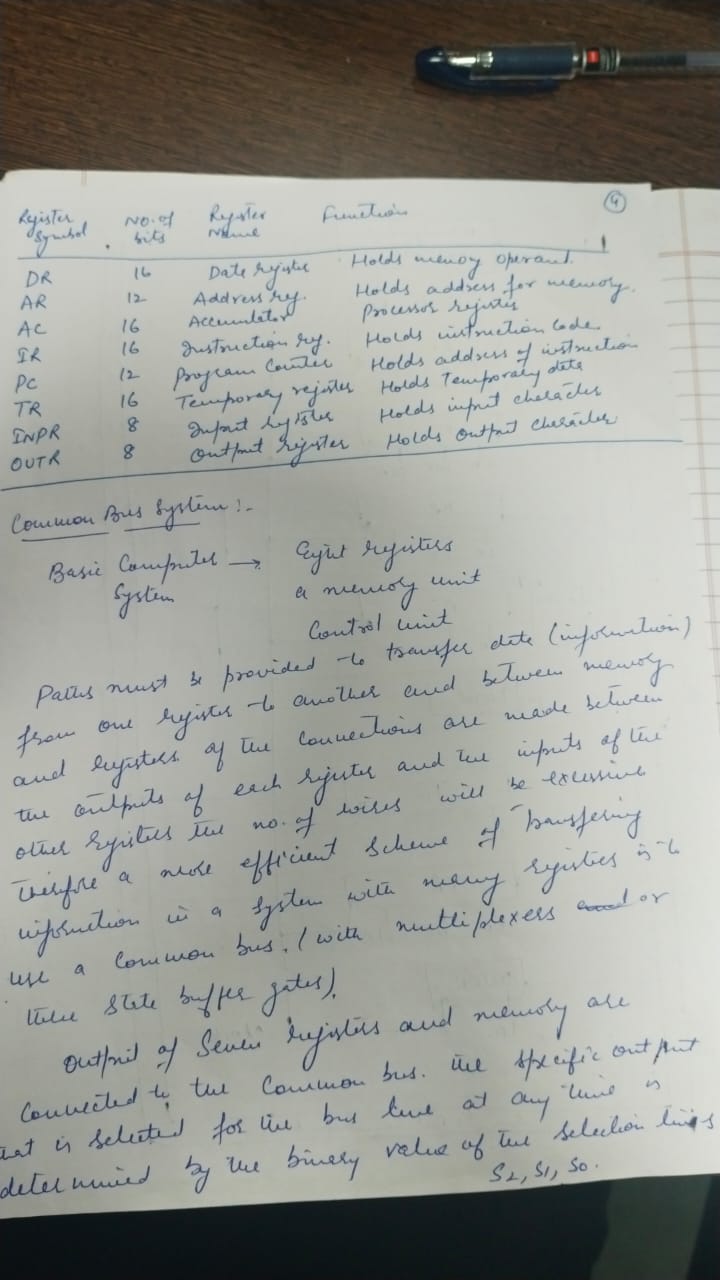 4
Register Symbol No. of bits Register Name Function
DR 16 Data register Holds memory operand.
AR 12 Address reg. Holds address for memory.
AC 16 Accumulator Processor register
IR 16 Instruction reg. Holds instruction code
PC 12 Program Counter Holds address of instruction
TR 16 Temporary register Holds Temporary data
INPR 8 Input register Holds input character
OUTR 8 Output register Holds output character
Common Bus System :-
Basic Computer → Eight registers
System a memory unit
Control unit
Paths must be provided to transfer data (information)
from one register to another and between memory
and registers if the connections are made between
the outputs of each register and the inputs of the
other registers the no. of wires will be excessive
therefore a more efficient scheme of transfering
information in a system with many registers is to
use a common bus. (with multiplexers or
three state buffer gates).
Output of Seven registers and memory are
connected to the common bus. the specific output
that is selected for the bus line at any time is
determined by the binary value of the selection lines
S2, S1, S0.